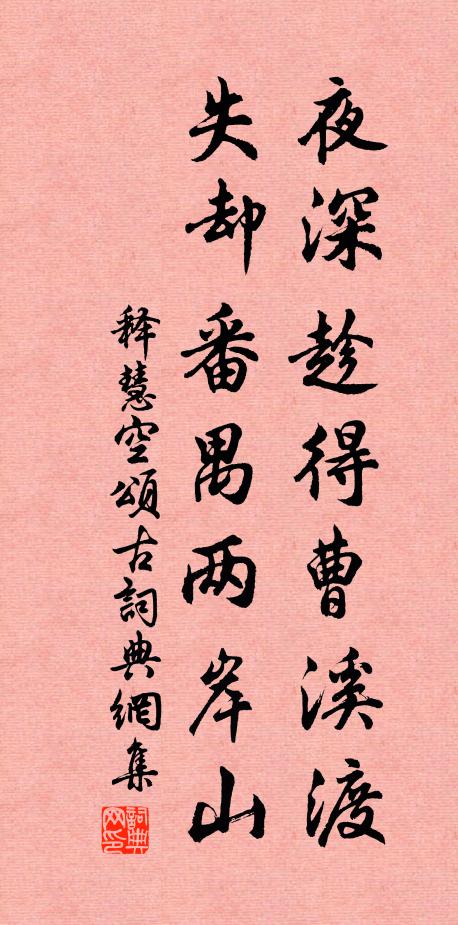 夜深趁得曹溪渡
失却番禺两岸山
释慧空頌古詞典網集
詞典
网印